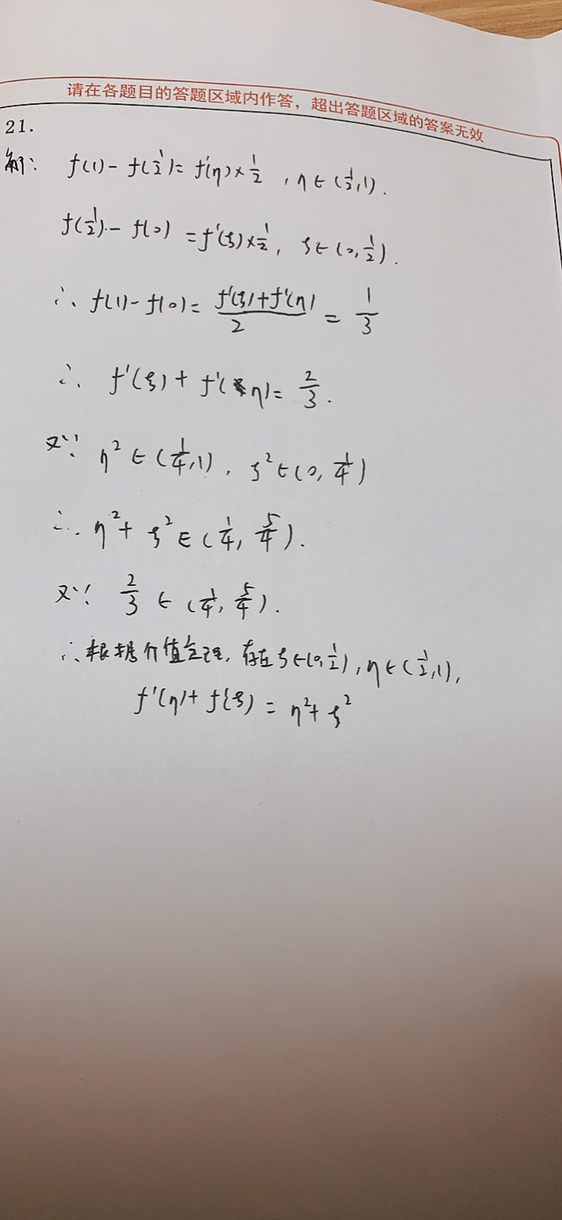 请在各题目的答题区域内作答，超出答题区域的答案无效
21.
解: f(1)-f(1/2)= f'(η)×1/2 , η∈(1/2,1).
f(1/2)-f(0)=f'(ξ)×1/2, ξ∈(0,1/2).
∴ f(1)-f(0)= (f'(ξ)+f'(η))/2 = 1/3
∴ f'(ξ)+f'(η)= 2/3.
又∵ η²∈(1/4,1), ξ²∈(0,1/4)
∴ η²+ξ²∈(1/4,5/4).
又∵ 2/3∈(1/4,5/4).
∴根据介值定理,存在ξ∈(0,1/2),η∈(1/2,1),
f'(η)+f'(ξ)=η²+ξ²